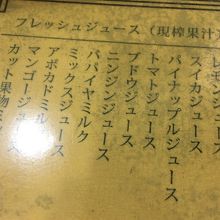 フレッシュジュース（現榨果汁）
レモンジュース
スイカジュース
パイナップルジュース
トマトジュース
ブドウジュース
ニンジンジュース
パパイヤミルク
ミックスジュース
アボカドミル
マンゴージュース
カット果物ミッ